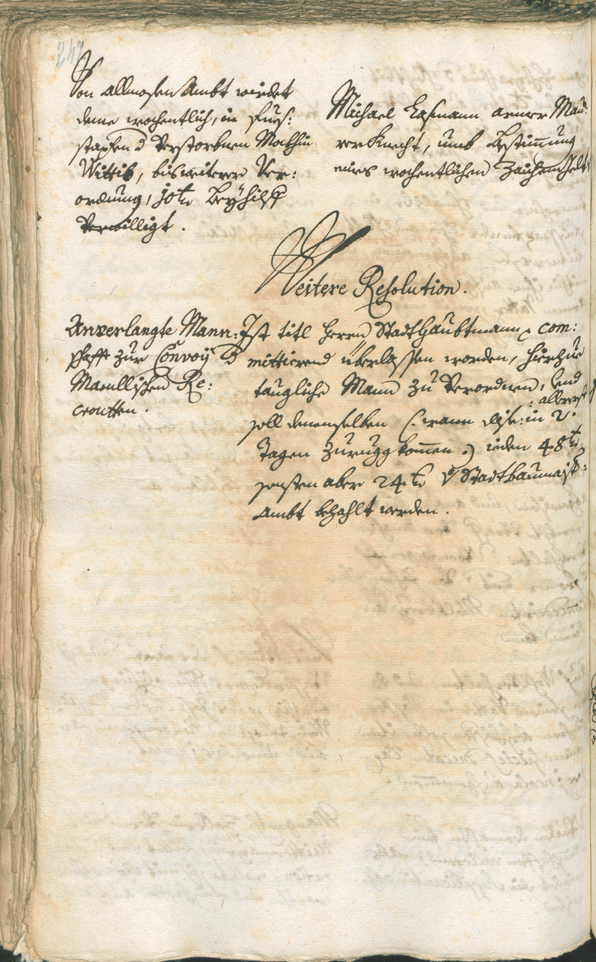 247
Von allmosen Ambt wirdet
deme wochentlich, in fuesß:
stapfen d verstorbnen Mathiu
Wittib, bis weitere Ver:
ordnung, 30 kr Beyhilff
verwilligt.
Michael Ersmann armer Mau:
rer Knecht, umb bestimmung
eines wochentlichen Zaichengelts
Weitere Resolution.
Anverlangte Mann:
schafft zur Convoy d
Marullischen Re:
croutten.
Ist titl Herrn Stadthaubtmann com:
mittirend überlassen worden, hierzue
taugliche Mann zu verordnen, und
soll denenselben (: wann dise in 2.
Tagen zurugg kommen :) ieden 48 kr
sonsten aber 24 kr Stadtbaumaist:
Ambt bezahlt werden.